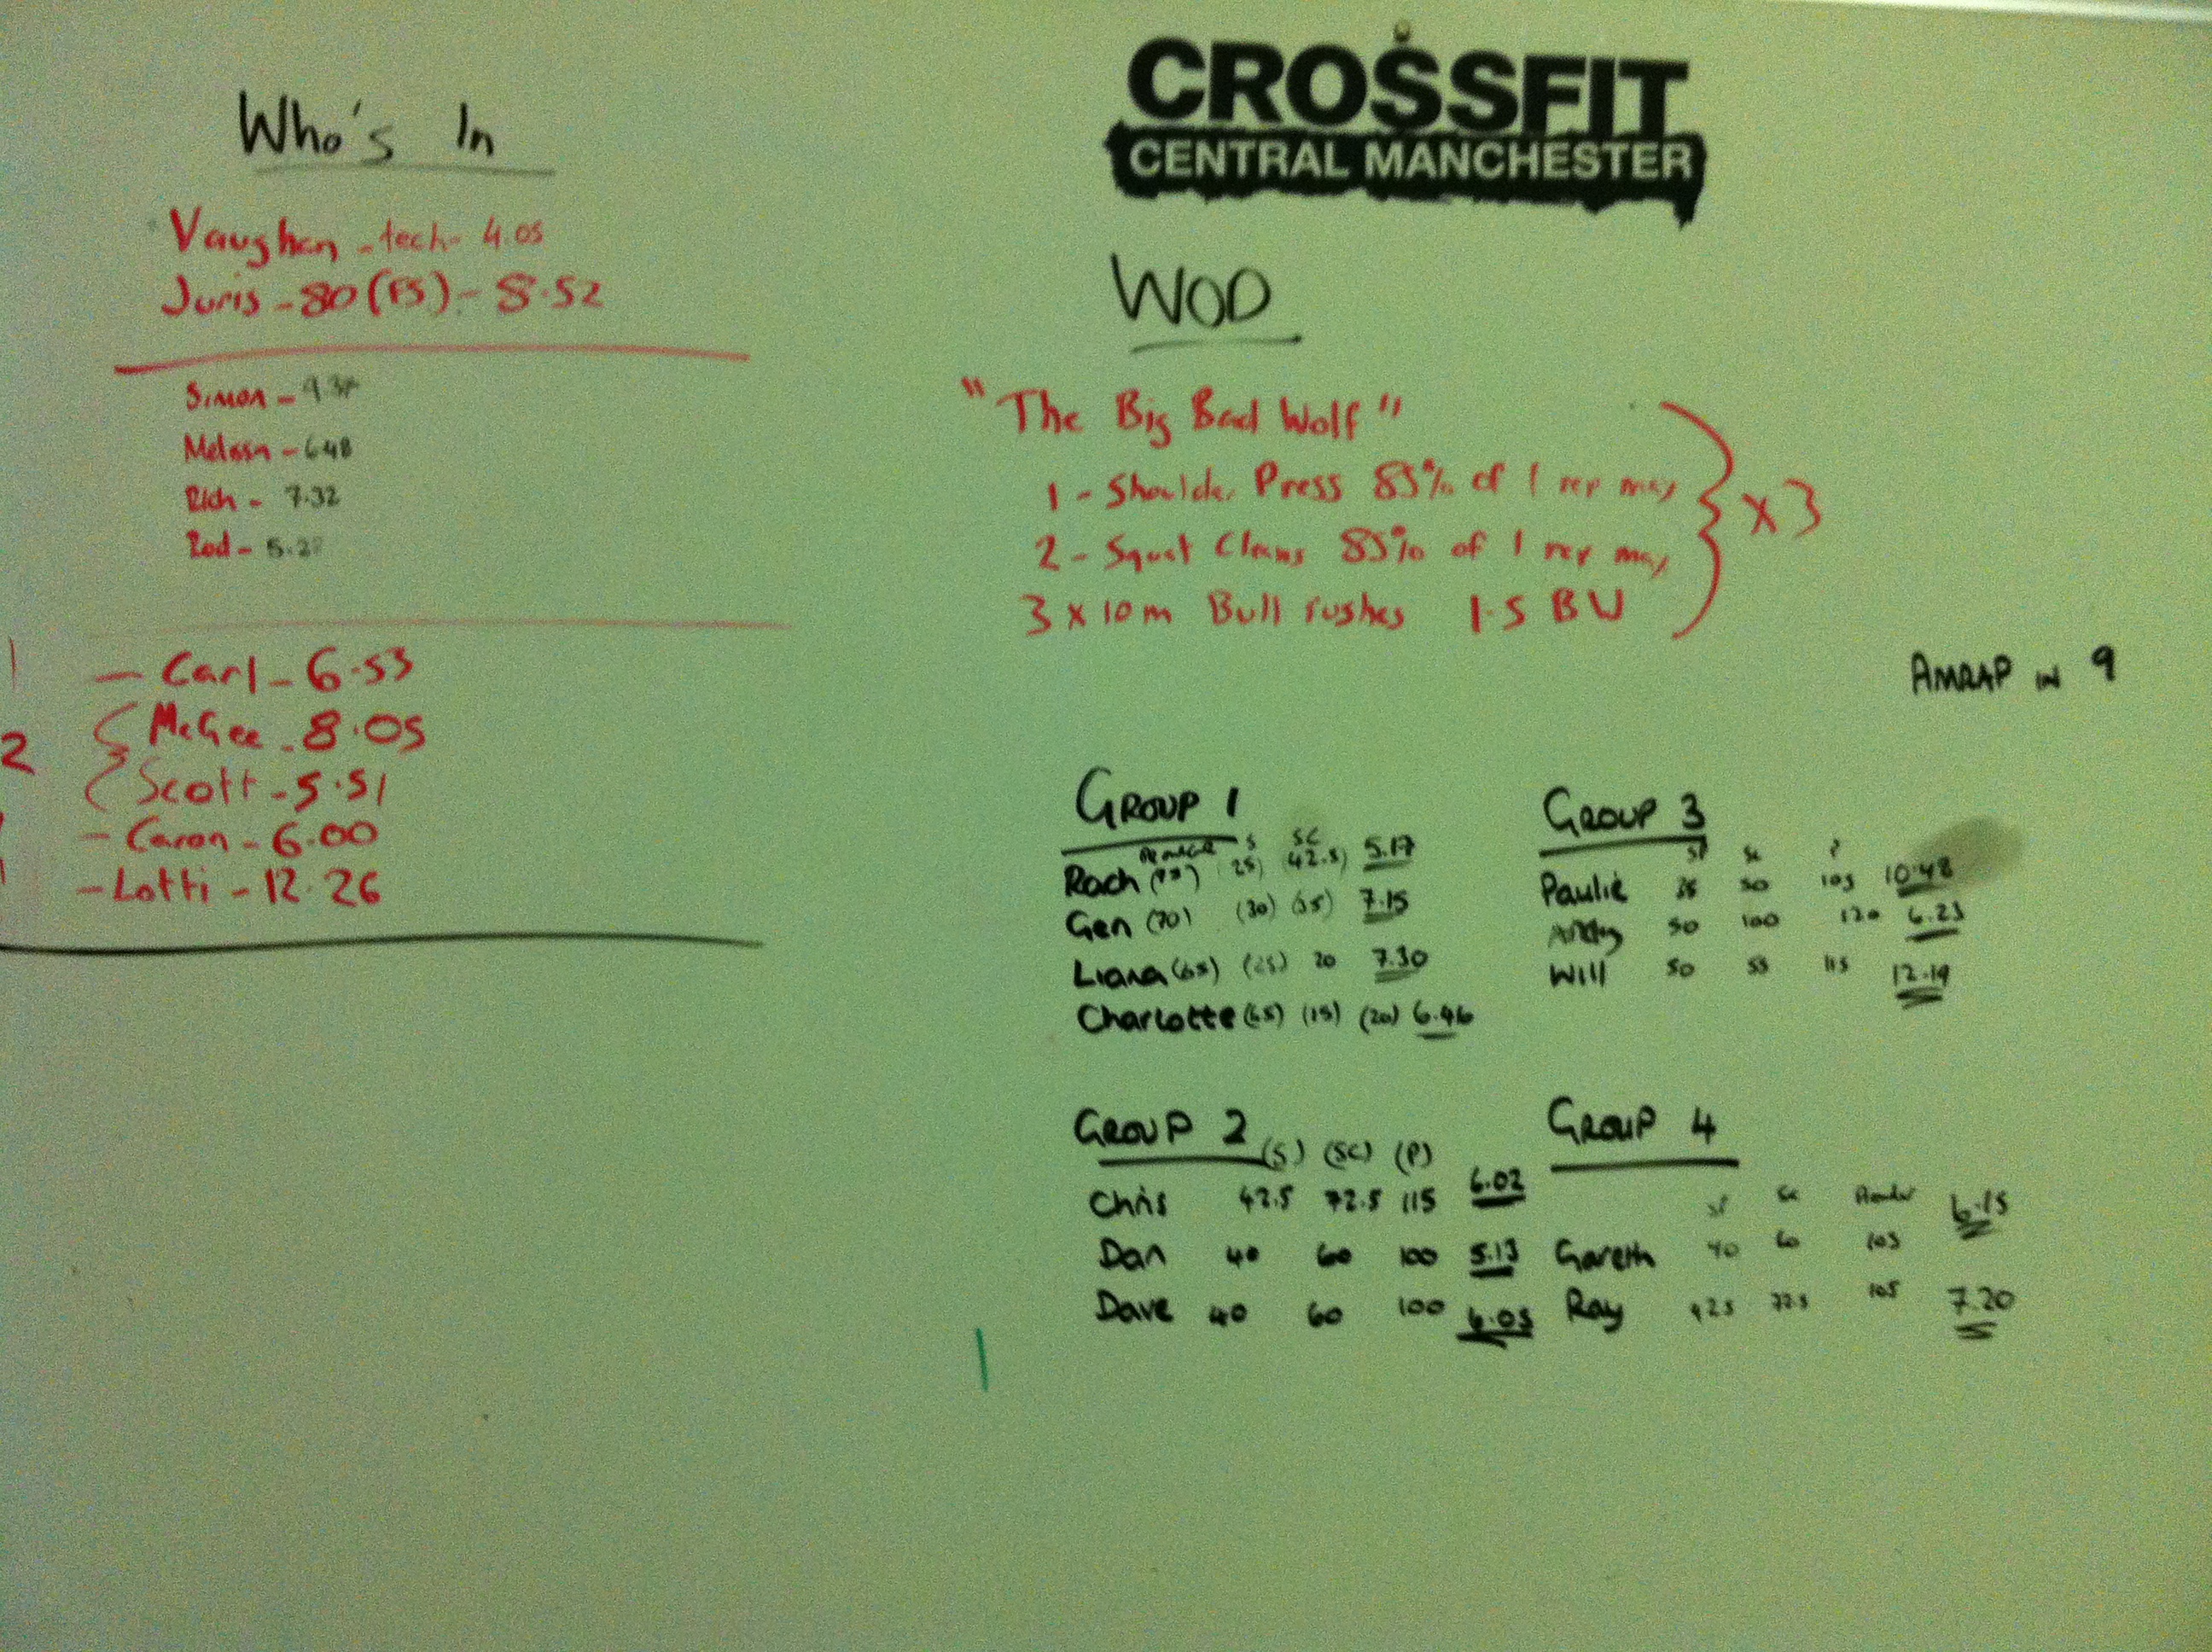 Who's In
Vaughan - tech - 4.05
Juris - 80 (FS) - 8.52
Simon - 9.38
Melissa - 6.48
Rich - 7.32
Rod - 5.27
1 - Carl - 6.53
2 McGee - 8.05
Scott - 5.51
- Caron - 6.00
- Lotti - 12.26
CROSSFIT
CENTRAL MANCHESTER
WOD
"The Big Bad Wolf"
1 - Shoulder Press 85% of 1 rep max
2 - Squat Cleans 85% of 1 rep max
3 x 10m Bull rushes 1.5 BW
x 3
AMRAP IN 9
GROUP 1
S SC
Rach (25) (42.5) 5.17
Gen (70) (30) (35) 7.15
Liana (65) (25) 20 7.30
Charlotte (65) (15) (20) 6.46
GROUP 3
SP SC P
Paulie 50 105 10.48
Andy 50 100 120 6.23
Will 50 55 115 12.19
GROUP 2
(S) (SC) (P)
Chris 42.5 72.5 115 6.02
Dan 40 60 100 5.13
Dave 40 60 100 6.05
GROUP 4
SP SC
Gareth 40 60 105 6.15
Ray 42.5 72.5 105 7.20